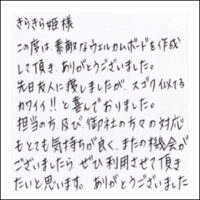 きらきら姫様
この度は、素敵なウェルカムボードを作成
して頂き、ありがとうございました。
先日友人に渡しましたが、スゴク似てる
カワイイ!!と喜んでおりました。
担当の方、及び、御社の方々の対応
もとても気持ちが良く、またの機会が
ございましたら、ぜひ利用させて頂き
たいと思います。ありがとうございました